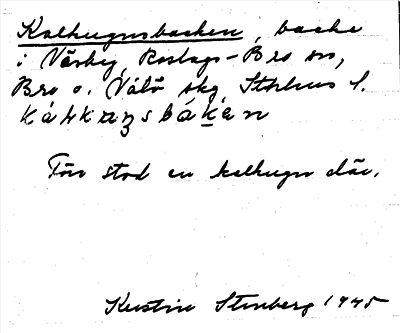 Kalkugnsbacken, backe
i Väsby, Roslags-Bro sn,
Bro o. Väto skg, Sthlms l.
Förr stod en kalkugn där.
Kerstin Stenberg 1945